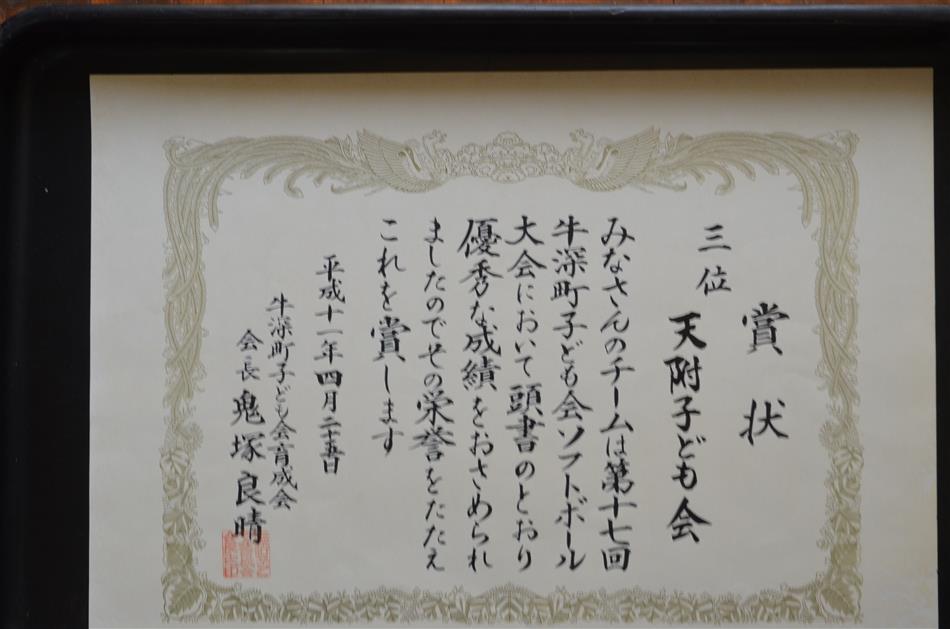 賞状
三位
天附子ども会
みなさんのチームは第十七回
牛深町子ども会ソフトボール
大会において頭書のとおり
優秀な成績をおさめられ
ましたのでその栄誉をたたえ
これを賞します
平成十一年四月二十五日
牛深町子ども会育成会
会長 鬼塚良晴